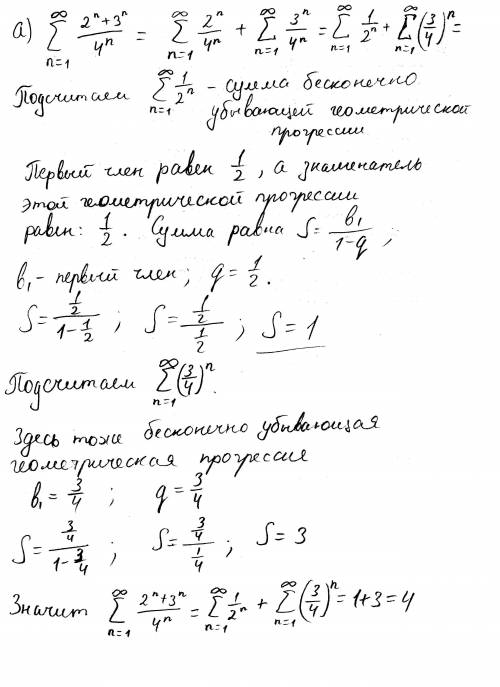 а) ∑_{n=1}^{∞} (2ⁿ+3ⁿ)/4ⁿ = ∑_{n=1}^{∞} 2ⁿ/4ⁿ + ∑_{n=1}^{∞} 3ⁿ/4ⁿ = ∑_{n=1}^{∞} 1/2ⁿ + ∑_{n=1}^{∞} (3/4)ⁿ =
Подсчитаем ∑_{n=1}^{∞} 1/2ⁿ - сумма бесконечно
убывающей геометрической
прогрессии
Первый член равен 1/2, а знаменатель
этой геометрической прогрессии
равен: 1/2. Сумма равна S = b₁/(1-q);
b₁ - первый член; q = 1/2.
S = (1/2)/(1-1/2); S = (1/2)/(1/2); S = 1
Подсчитаем ∑_{n=1}^{∞} (3/4)ⁿ.
Здесь тоже бесконечно убывающая
геометрическая прогрессия
b₁ = 3/4; q = 3/4
S = (3/4)/(1-3/4); S = (3/4)/(1/4); S = 3
Значит ∑_{n=1}^{∞} (2ⁿ+3ⁿ)/4ⁿ = ∑_{n=1}^{∞} 1/2ⁿ + ∑_{n=1}^{∞} (3/4)ⁿ = 1+3 = 4